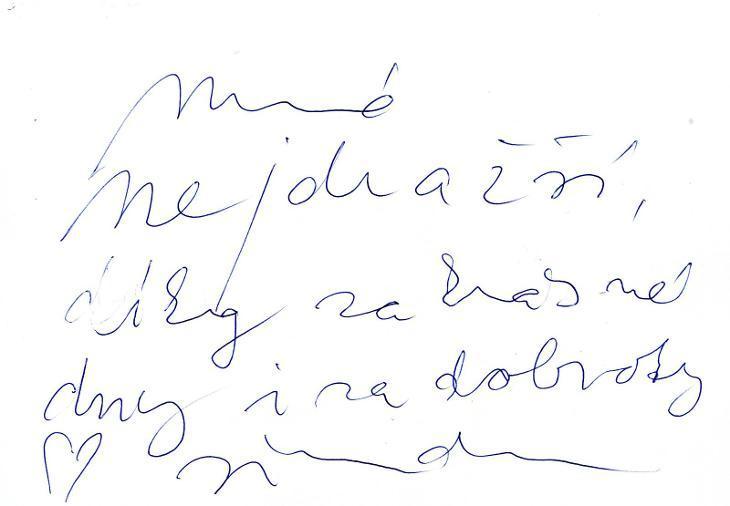 Mé
nejdražší,
díky za krásné
dny i za dobroty
♡